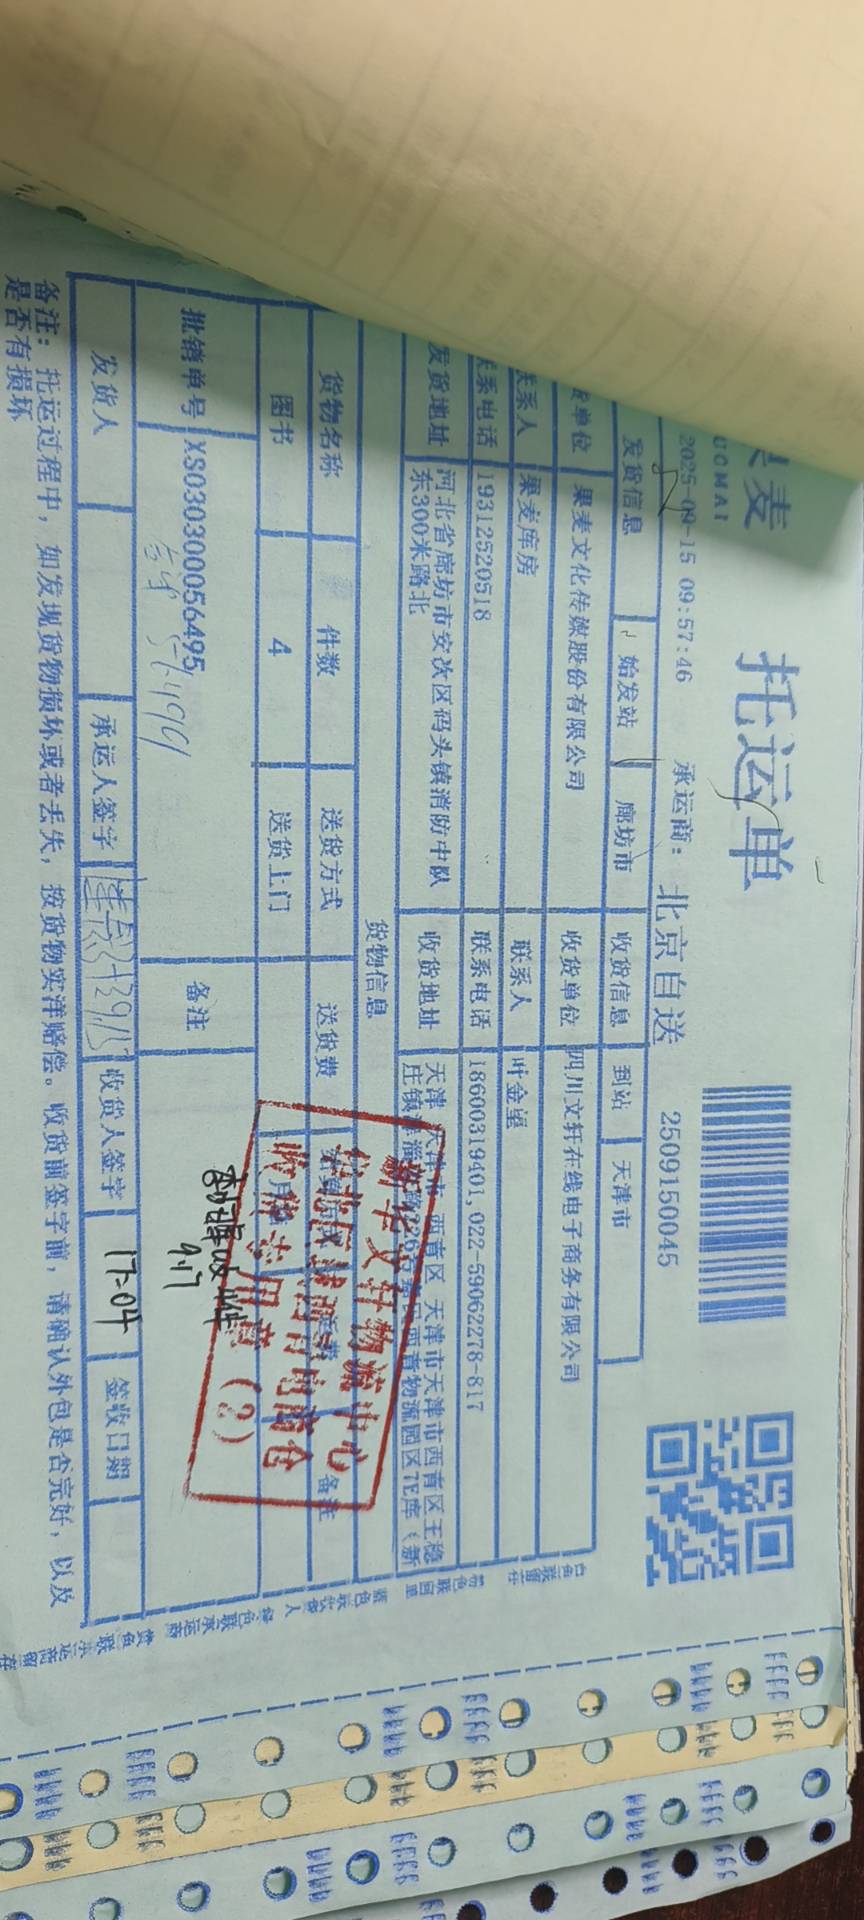 托运单
麦
UOMAI
2025-09-15 09:57:46 承运商： 北京自送 2509150045
发货信息 始发站 廊坊市 收货信息 到站 天津市
货单位 果麦文化传媒股份有限公司 收货单位 四川文轩在线电子商务有限公司
联系人 果麦库房 联系人 叶金星
联系电话 19312520518 联系电话 18600319401,022-59062278-817
发货地址 河北省廊坊市安次区码头镇消防中队东300米路北 收货地址 天津 天津市 西青区 天津市天津市西青区王稳
庄镇 西青物流园区7E库（新
货物信息
货物名称 件数 送货方式 送货费 备注
图书 4 送货上门
批销单号 XS030300056495 备注
发货人 承运人签字 收货人签字 17:04 签收日期
9.17
新华文轩物流中心
收货专用章（2）
备注：托运过程中，如发现货物损坏或者丢失，按货物实洋赔偿。收货前签字前，请确认外包是否完好，以及
是否有损坏
白色联留存